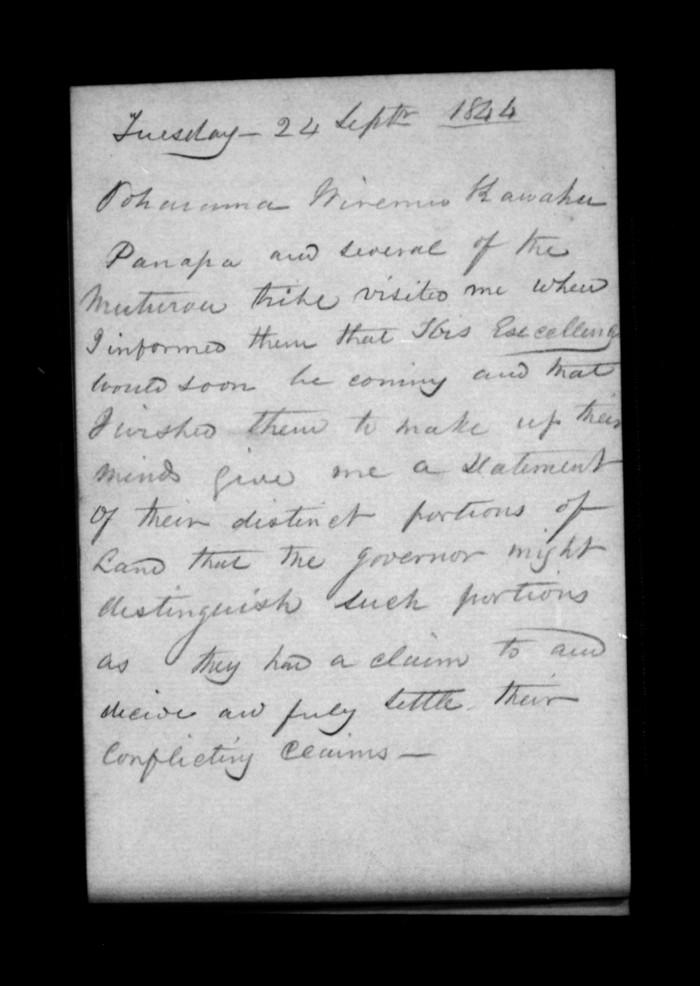 Tuesday - 24 Septr 1844
Poharama Wiremu Kawaho
Panapa and several of the
tribe visited me when
I informed them that His Excellency
would soon be coming and that
I wished them to make up their
minds give me a statement
of their distinct portions of
Land that the governor might
distinguish such portions
as they had a claim to and
decide and fully settle their
Conflicting Claims —